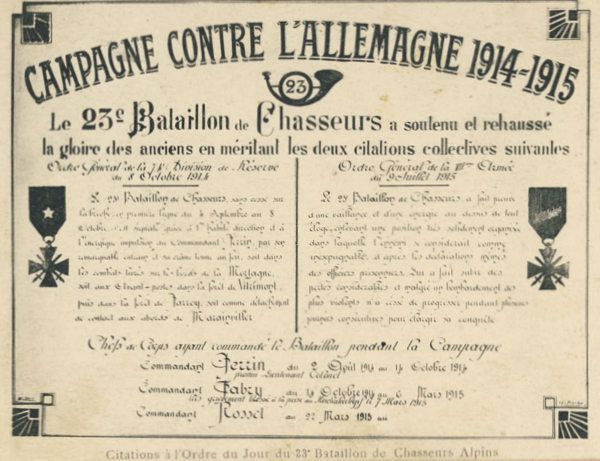 CAMPAGNE CONTRE L'ALLEMAGNE 1914-1915
23
Le 23e Bataillon de Chasseurs a soutenu et rehaussé
la gloire des anciens en méritant les deux citations collectives suivantes
Ordre Général de la 74e Division de Réserve
du 8 Octobre 1914
Le 23 Bataillon de Chasseurs, sans cesse sur
la brèche en première ligne du 4 Septembre au 8
Octobre s'est signalé grâce à l'habile direction et à
l'énergique impulsion du Commandant Perrin, par son
remarquable entrain et sa crâne tenue au feu, soit dans
les combats livrés sur les bords de la Mortagne,
soit aux Avant-postes dans la forêt de Vitrimont,
puis dans la forêt de Parroy, soit comme détachement
de contact aux abords de Marainviller
Ordre Général de la VIIe Armée
du 9 Juillet 1915
Le 23 Bataillon de Chasseurs, a fait preuve
d'une vaillance et d'une énergie au dessus de tout
éloge, enlevant une position très solidement organisée
dans laquelle l'ennemi se considérait comme
inexpugnable, d'après les déclarations mêmes
des officiers prisonniers. Lui a fait subir des
pertes considérables et malgré un bombardement des
plus violents n'a cessé de progresser pendant plusieurs
journées consécutives pour élargir sa conquête
Chefs de Corps ayant commandé le Bataillon pendant la Campagne
Commandant Perrin du 2 Août 1914 au 14 Octobre 1914
promu Lieutenant Colonel
Commandant Fabry du 14 Octobre 1914 au 6 Mars 1915
très grièvement blessé à la prise du 7 Mars 1915
Commandant Rosset au 22 Mars 1915 au
Citations à l'Ordre du Jour du 23e Bataillon de Chasseurs Alpins